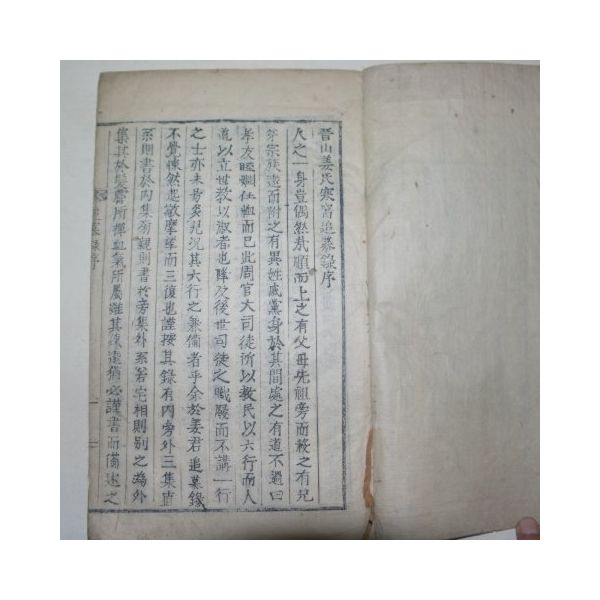 晉山姜氏寒窩追慕錄序
人之一身豈偶然哉順而上之有父母先祖旁而蔽之有兄
弟宗族遠而附之有異姓戚黨身於其間處之有道不過曰
孝友睦婣任恤而已此周官大司徒所以敎民以六行而人
道以立世敎以淑者也降及後世司徒之職廢而不講一行
之士亦未易多見況其六行之兼備者乎余於姜君追慕錄
不覺悚然起敬摩挲而三復也謹按其錄有內旁外三集直
系則書於內集旁親則書於旁集外系若宅相則別之爲外
集其於髮膚所禪血氣所屬雖其疎遠猶必謹書而備述之
追慕錄序
一